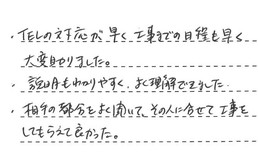 ・TELの対応が早く工事までの日程も早く
大変助かりました。
・説明もわかりやすく、よく理解できました。
・相手の都合をよく聞いて、その人に合せて工事を
してもらえて良かった。